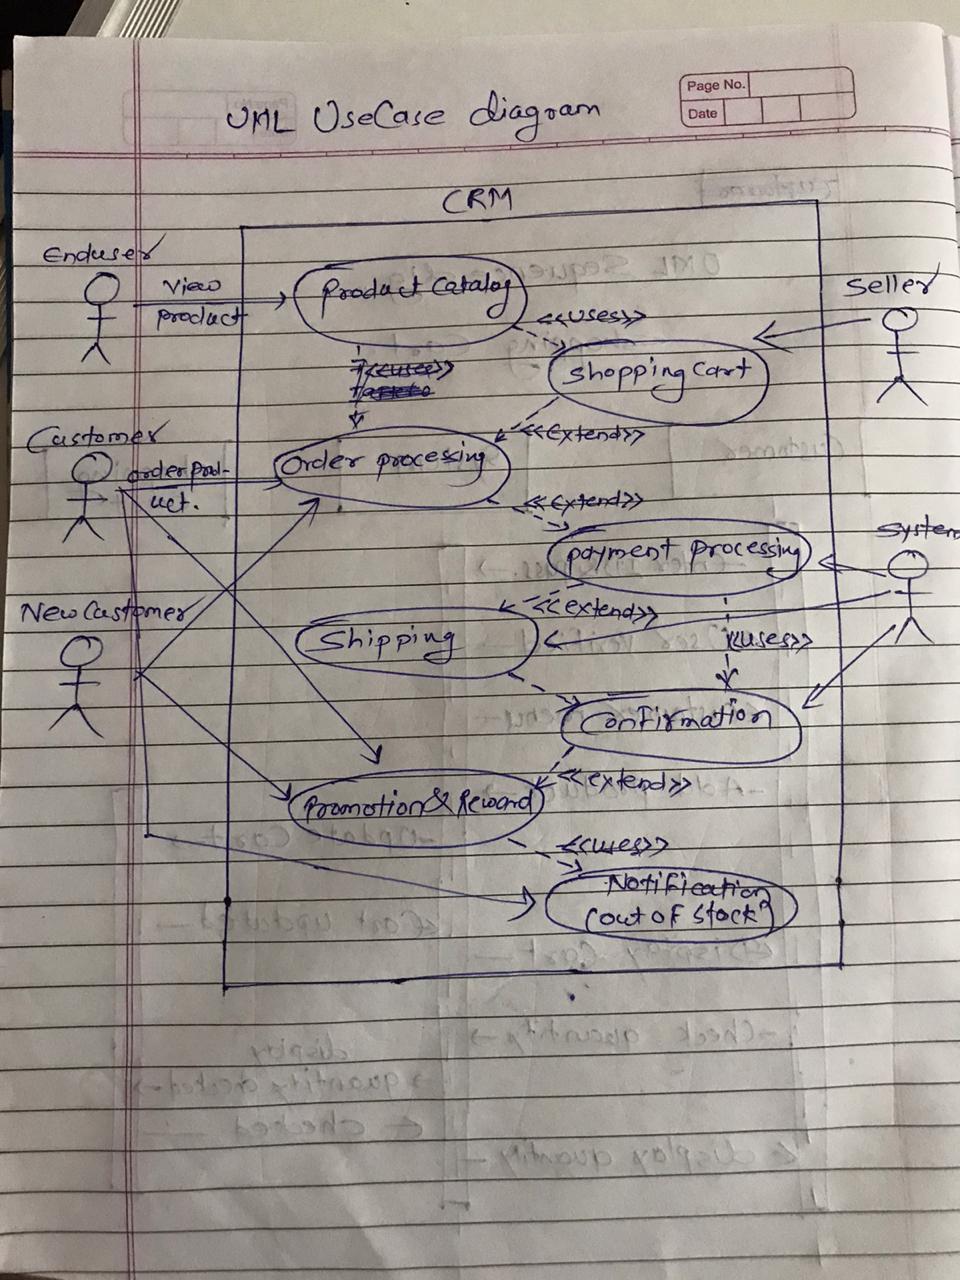 Page No.
Date
UML UseCase diagram
CRM
Enduser
View
product
Product Catalog
<<uses>>
Seller
Shopping Cart
<<uses>>
<<extend>>
Customer
order prod-
uct.
Order processing
<<extend>>
System
payment processing
<<extend>>
New Customer
Shipping
<<uses>>
Confirmation
<<extend>>
Promotion & Reward
<<uses>>
Notification
(out of stock)